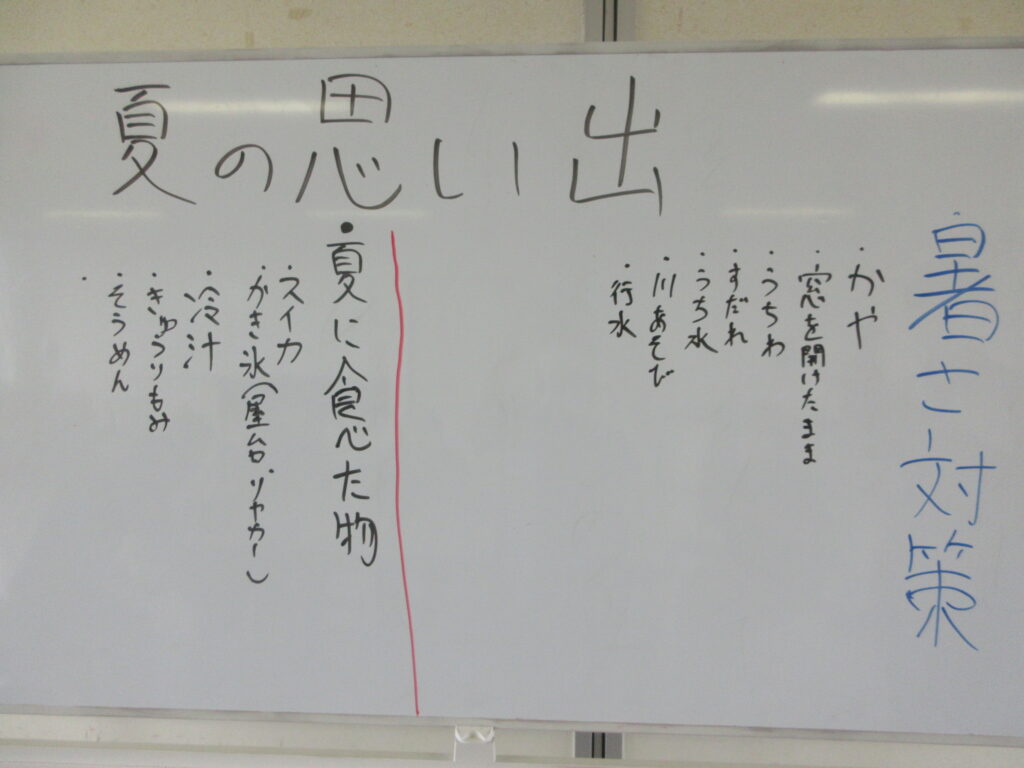 夏の思い出
暑さ対策
・かや
・窓を開けたまま
・うちわ
・すだれ
・うち水
・川あそび
・行水
・夏に食べた物
・スイカ
・かき氷(屋台、リヤカー)
・冷汁
・きゅうりもみ
・そうめん
・